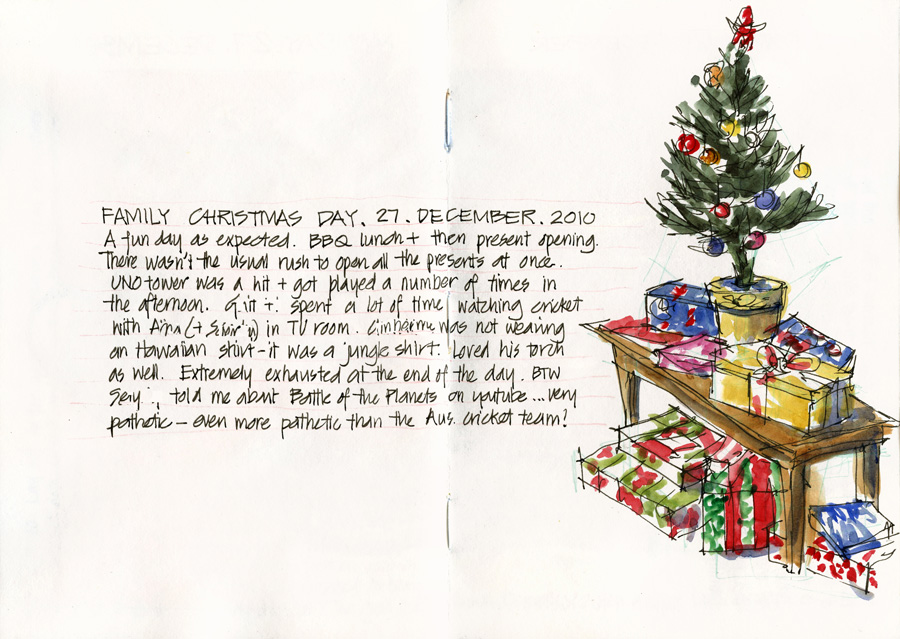 FAMILY CHRISTMAS DAY. 27. DECEMBER. 2010
A fun day as expected. BBQ lunch + then present opening.
There wasn't the usual rush to open all the presents at once.
UNO tower was a hit + got played a number of times in
the afternoon. spent a lot of time watching cricket
with (+ in TV room. was not wearing
an Hawaiian shirt - it was a 'jungle shirt'. Loved his torch
as well. Extremely exhausted at the end of the day. BTW
told me about Battle of the Planets on youtube... very
pathetic - even more pathetic than the Aus. cricket team!